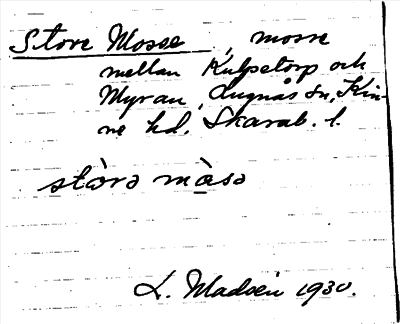 Store Mosse, mosse
mellan Kulpetorp och
Myran, Lugnås sn, Kin-
ne hd. Skarab. l.
stòrə mȧ̀sə
L. Madsén 1930.